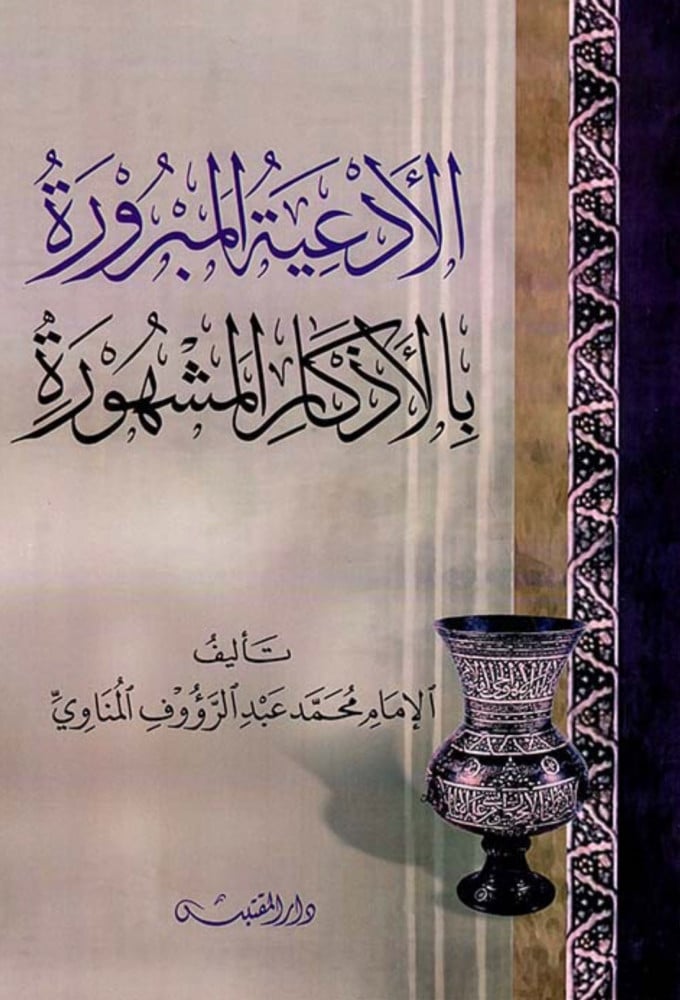 الأَدْعِيَةُ المَبْرُوْرَةُ
بِالأَذْكَارِ المَشْهُوْرَةِ
تَأليفُ
الإمَامِ مُحَمَّد عَبْدِ الرَّؤُوْفِ المُنَاوِيِّ
دار المقتبس